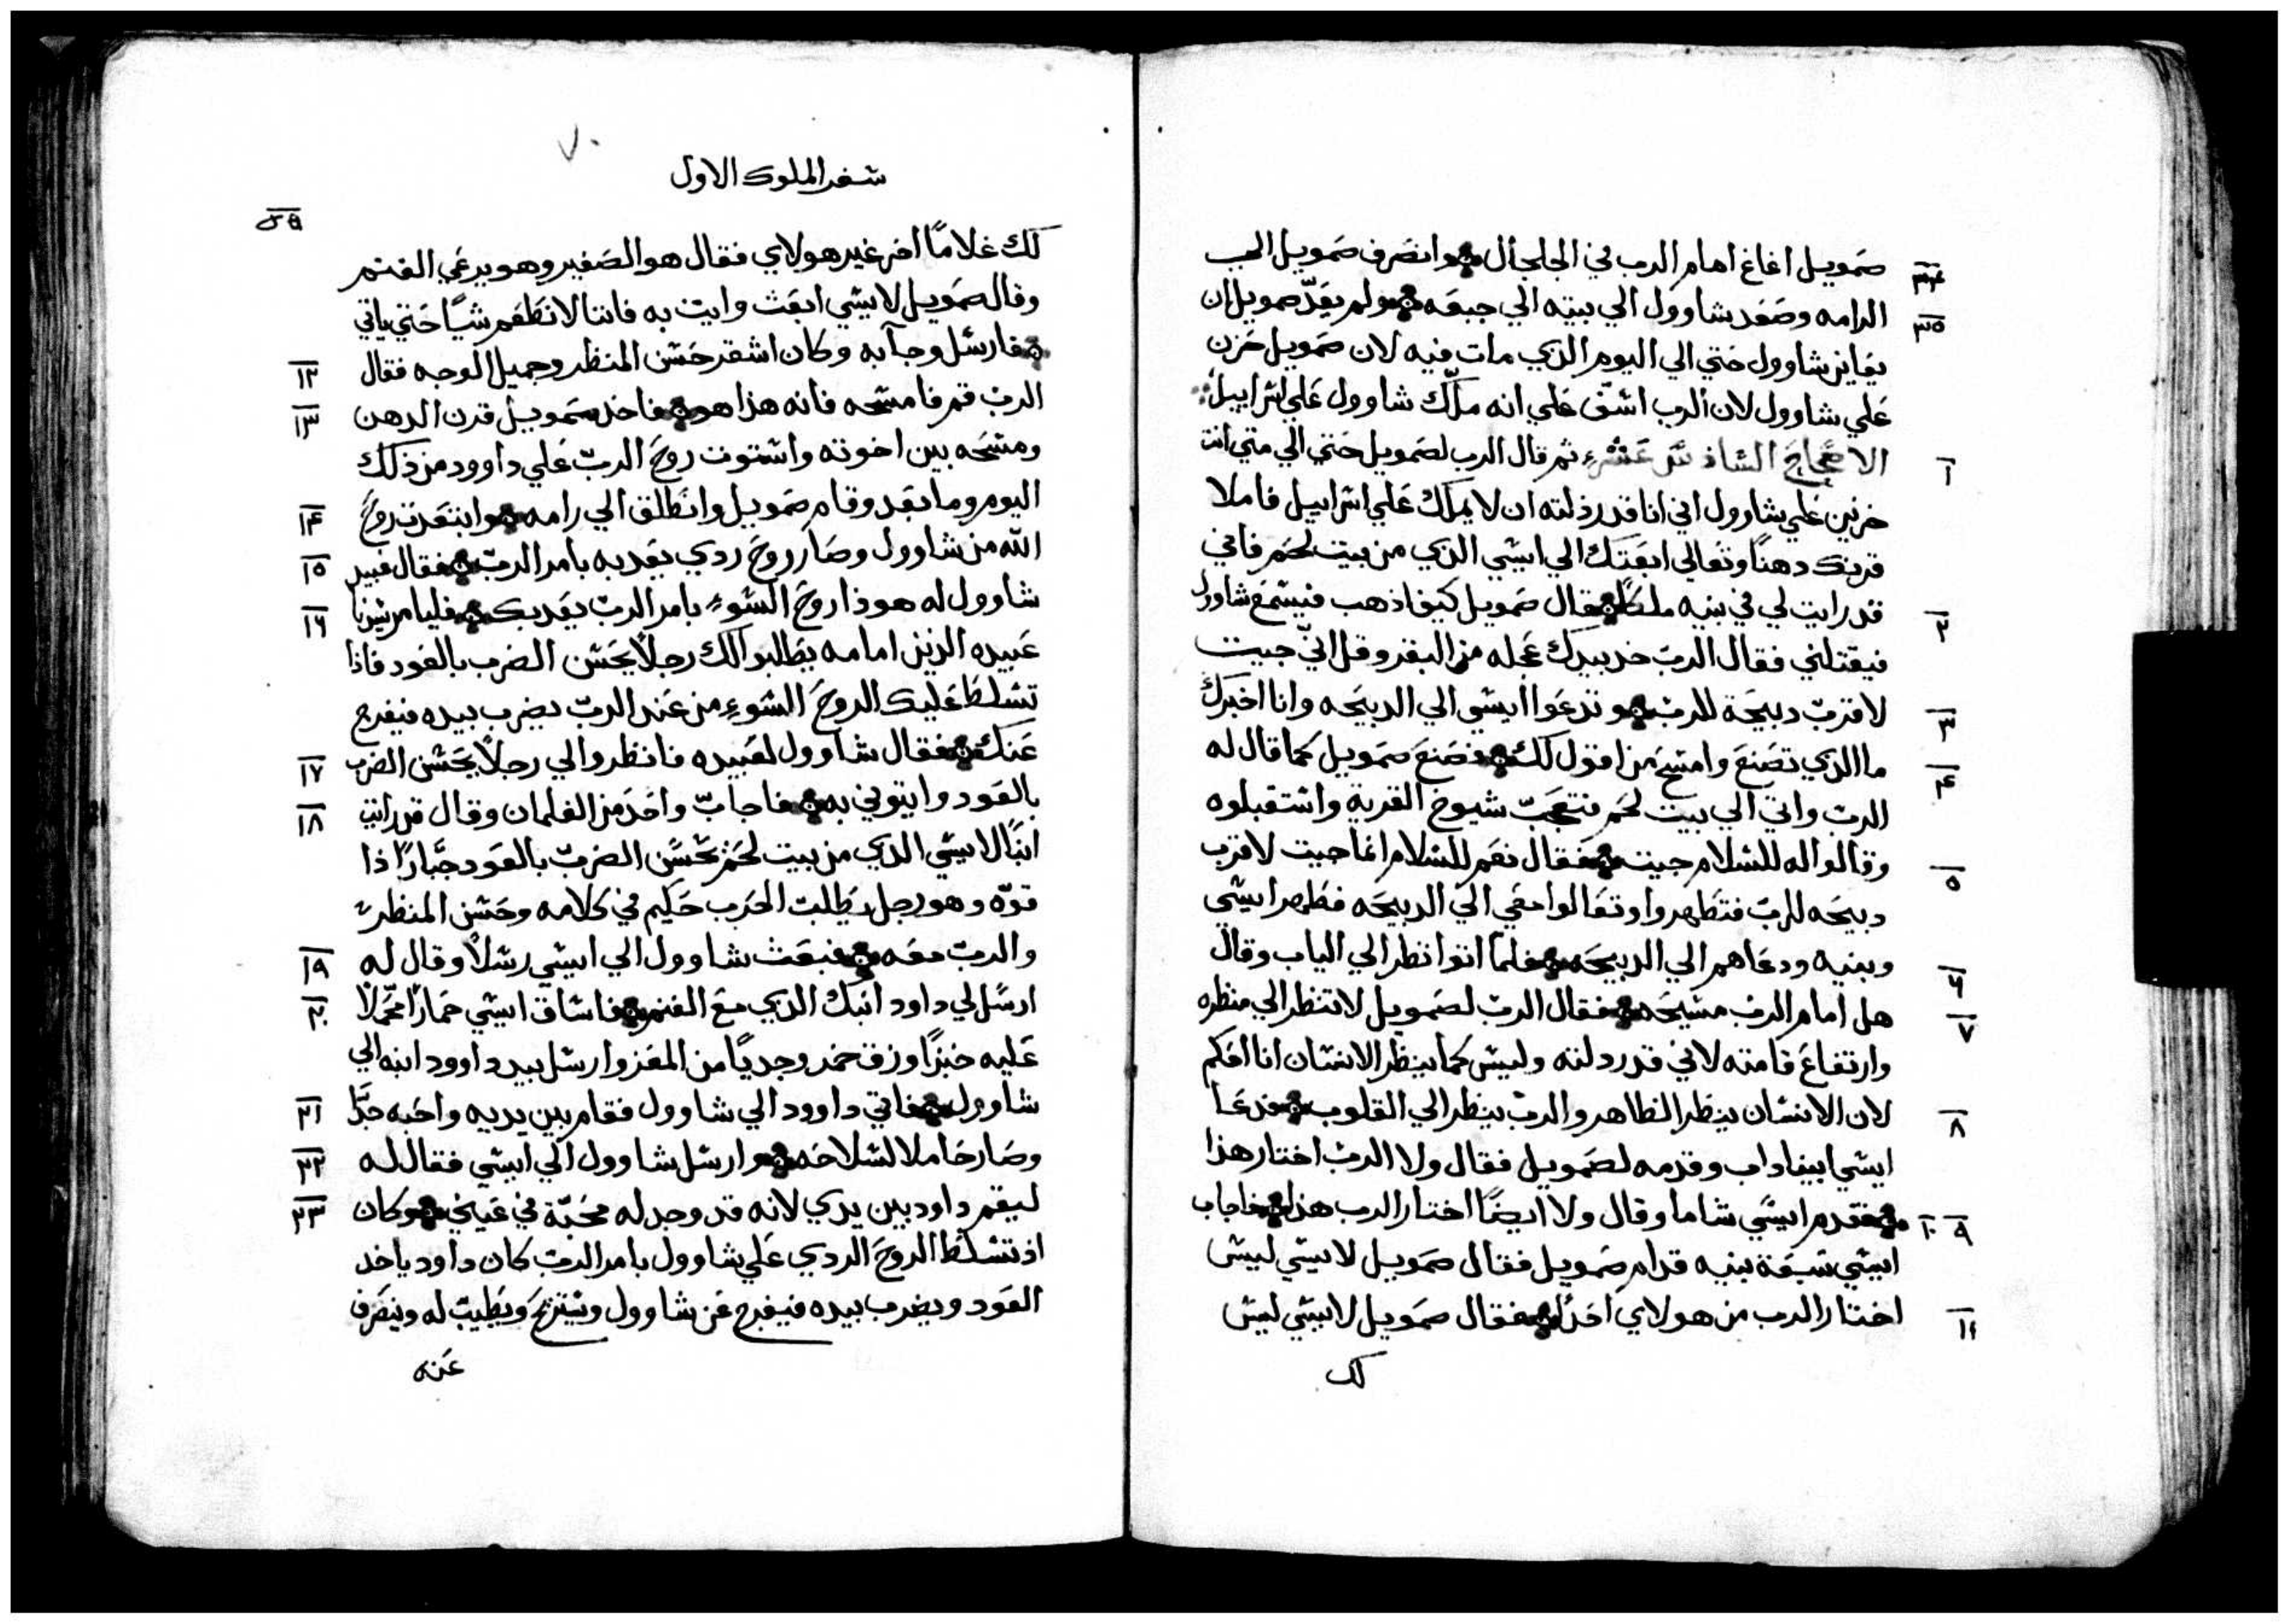 صمويل اغاغ امام الرب في الجلجال وانصرف صمويل الي
٣٤
الرامه وصعد شاوول الي بيته الي جبعه ولم يعدّ صمويل ان
٣٥
يعاين شاوول حتي الي اليوم الذي مات فيه لان صمويل حزن
علي شاوول لان الرب اسّف علي انه ملّك شاوول علي اسراييل
الاصحاح السادس عشر ثم قال الرب لصمويل حتي الي متي انت
١
حزين علي شاوول اني انا قد رذلته ان لا يملك علي اسراييل فاملا
قرنك دهنًا وتعالي ابعتك الي ايسي الذي من بيت لحم فاني
قد رايت لي في بنيه ملكًا فقال صمويل كيف اذهب فيسمع شاوول
٢
فيقتلني فقال الربّ خد بيدك عجله من البقر وقل انّي جيت
لاقربّ دبيحة للربّ وتدعوا ايسي الي الدبيحه وانا اخبرك
٣
ما الذي تصنع وامسح من اقول لك فصنع صمويل كما قال له
٤
الربّ واتي الي بيت لحم فتعجبّ شيوخ القرية واستقبلوه
وقالوا له للسلام جيت فقال نعم للسلام انما جيت لاقرب
٥
دبيحه للربّ فتطهروا وتعالوا معي الي الدبيحه فطهر ايسي
وبنيه ودعاهم الي الدبيحه فلما اتوا نظر الي الياب وقال
٦
هل امام الربّ مسيحه فقال الربّ لصمويل لا تنظر الي منظره
٧
وارتفاع قامته لاني قد ردلته وليس كما ينظر الانسان انا احكم
لان الانسان ينظر الظاهر والربّ ينظر الي القلوب فدعا
٨
ايسي ابيناداب وقدمه لصمويل فقال ولا الربّ اختار هذا
فقدم ايسي شاما وقال ولا ايضًا اختار الرب هذا فاجاب
٩ ١٠
ايسي سبعة بنيه قدام صمويل فقال صمويل لايسي ليس
اختار الرب من هولاي احدًا فقال صمويل لايسي ليس
١١
لك
٧٠
سفر الملوك الاول
٥٩
لك غلامًا اخر غير هولاي فقال هو الصغير وهو يرعي الغنم
وقال صمويل لايسي ابعث وايت به فاننا لا نطعم شيًا حتي ياتي
فارسل وجآ به وكان اشقر حسن المنظر وجميل الوجه فقال
١٢
الربّ قم فامسحه فانه هذا هو فاخد صمويل قرن الدهن
١٣
ومسحه بين اخوته واستوت روح الربّ علي داوود من ذلك
اليوم وما بعد وقام صمويل وانطلق الي رامه وابتعدت روح
١٤
الله من شاوول وصار روح ردي يعدبه بامر الربّ فقال عبيد
١٥
شاوول له هوذا روح السوء بامر الربّ يعدبك فليامر سيدنا
١٦
عبيده الذين امامه يطلبوا لك رجلًا يحسن الضرب بالعود فاذا
تسلط عليك الروح السوء من عند الربّ يضرب بيده فيفرج
عنك فقال شاوول لعبيده فانظروا لي رجلًا يحسن الضرب
١٧
بالعود وايتوني به فاجابّ واحد من الغلمان وقال قد رايت
١٨
ابنًا لايسي الذي من بيت لحم يحسن الضربّ بالعود جبّارًا ذا
قوّه وهو رجل يطلب الحرب حكيم في كلامه وحسن المنظر
والربّ معه فبعث شاوول الي ايسي رسلًا وقال له
١٩
ارسل لي داود ابنك الذي مع الغنم فاساق ايسي حمارًا محمّلًا
٢٠
عليه خبزًا وزق خمر وجديًا من المعز وارسل بيد داوود ابنه الي
شاوول فاتي داوود الي شاوول فقام بين يديه واحبه جدًّا
٢١
وصار حاملا لسلاحه وارسل شاوول الي ايسي فقال له
٢٢
ليقم داود بين يدي لانه قد وجد له محبّة في عيني وكان
٢٣
اذ تسلط الروح الردي علي شاوول بامر الربّ كان داود ياخد
العود ويضرب بيده فيفرج عن شاوول ويستريح ويطيب له وينصرف
عنه